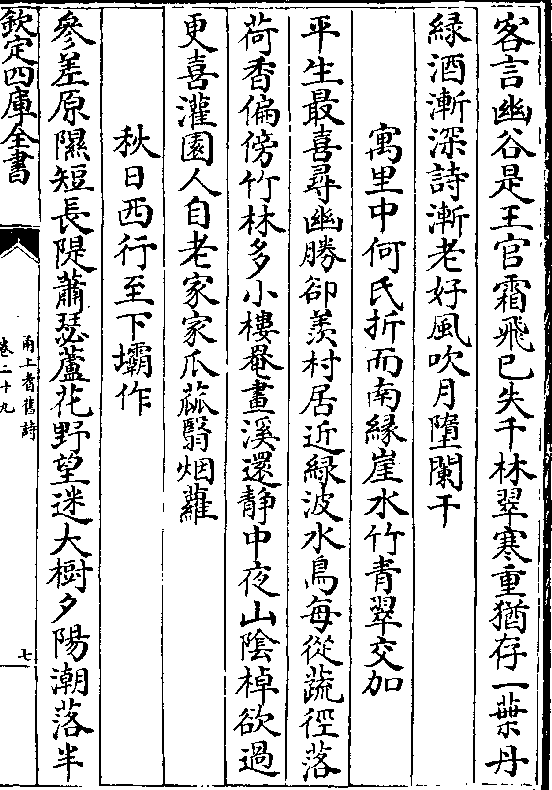 客言幽谷是王官霜飛已失千林翠寒重猶存一葉丹
緑酒漸深詩漸老好風吹月墮闌干
寓里中何氏折而南縁崖水竹青翠交加
平生最喜尋幽勝卻羡村居近緑波水鳥每從蔬徑落
荷香偏傍竹林多小樓罨畫溪還静中夜山陰棹欲過
更喜灌園人自老家家瓜蓏翳烟蘿
秋日西行至下壩作
參差原隰短長隄蕭瑟蘆花野望迷大樹夕陽潮落半
欽定四庫全書
甬上耆舊詩
卷二十九
七